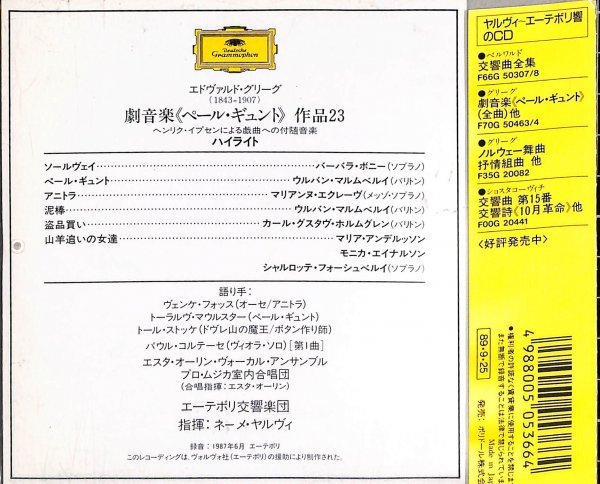 Deutsche
Grammophon
エドヴァルド・グリーグ
(1843-1907)
劇音楽《ペール・ギュント》 作品23
ヘンリク・イプセンによる戯曲への付随音楽
ハイライト
ソールヴェイ……バーバラ・ボニー(ソプラノ)
ペール・ギュント……ウルバン・マルムベルイ(バリトン)
アニトラ……マリアンヌ・エクレーヴ(メッゾ・ソプラノ)
泥棒……ウルバン・マルムベルイ(バリトン)
盗品買い……カール・グスタヴ・ホルムグレン(バリトン)
山羊追いの女達……マリア・アンデルッソン
モニカ・エイナルソン
シャルロッテ・フォーシュベルイ(ソプラノ)
語り手：
ヴェンケ・フォッス(オーセ/アニトラ)
トーラルヴ・マウルスター(ペール・ギュント)
トール・ストッケ(ドヴレ山の魔王/ボタン作り師)
パウル・コルテーセ(ヴィオラ・ソロ)[第1曲]
エスタ・オーリン・ヴォーカル・アンサンブル
プロ・ムジカ室内合唱団
(合唱指揮：エスタ・オーリン)
エーテボリ交響楽団
指揮：ネーメ・ヤルヴィ
録音：1987年6月 エーテボリ
このレコーディングは、ヴォルヴォ社(エーテボリ)の援助により制作された。
ヤルヴィ〜エーテボリ響
のCD
●ベルワルド
交響曲全集
F66G 50307/8
●グリーグ
劇音楽《ペール・ギュント》
(全曲)他
F70G 50463/4
●グリーグ
ノルウェー舞曲
抒情組曲 他
F35G 20082
●ショスタコーヴィチ
交響曲 第15番
交響詩《10月革命》他
F00G 20441
〈好評発売中〉
4988005053664
●権利者の許諾なく賃貸業に使用することを禁じま
また無断で録音することは法律で禁じられていま
89・9・25
発売：ポリドール株式会
Made in Jap